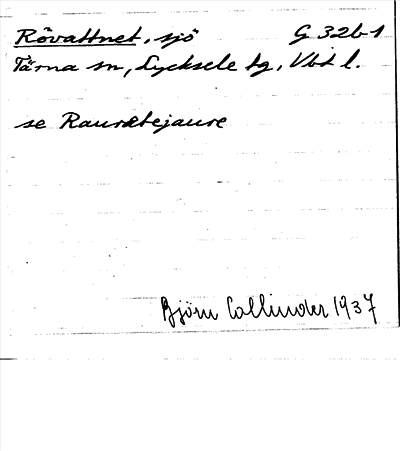 Rövattnet, sjö G 32b1
Tärna sn, Lycksele tg, Vbt l.
se Raurebejaure
Björn Collinder 1937